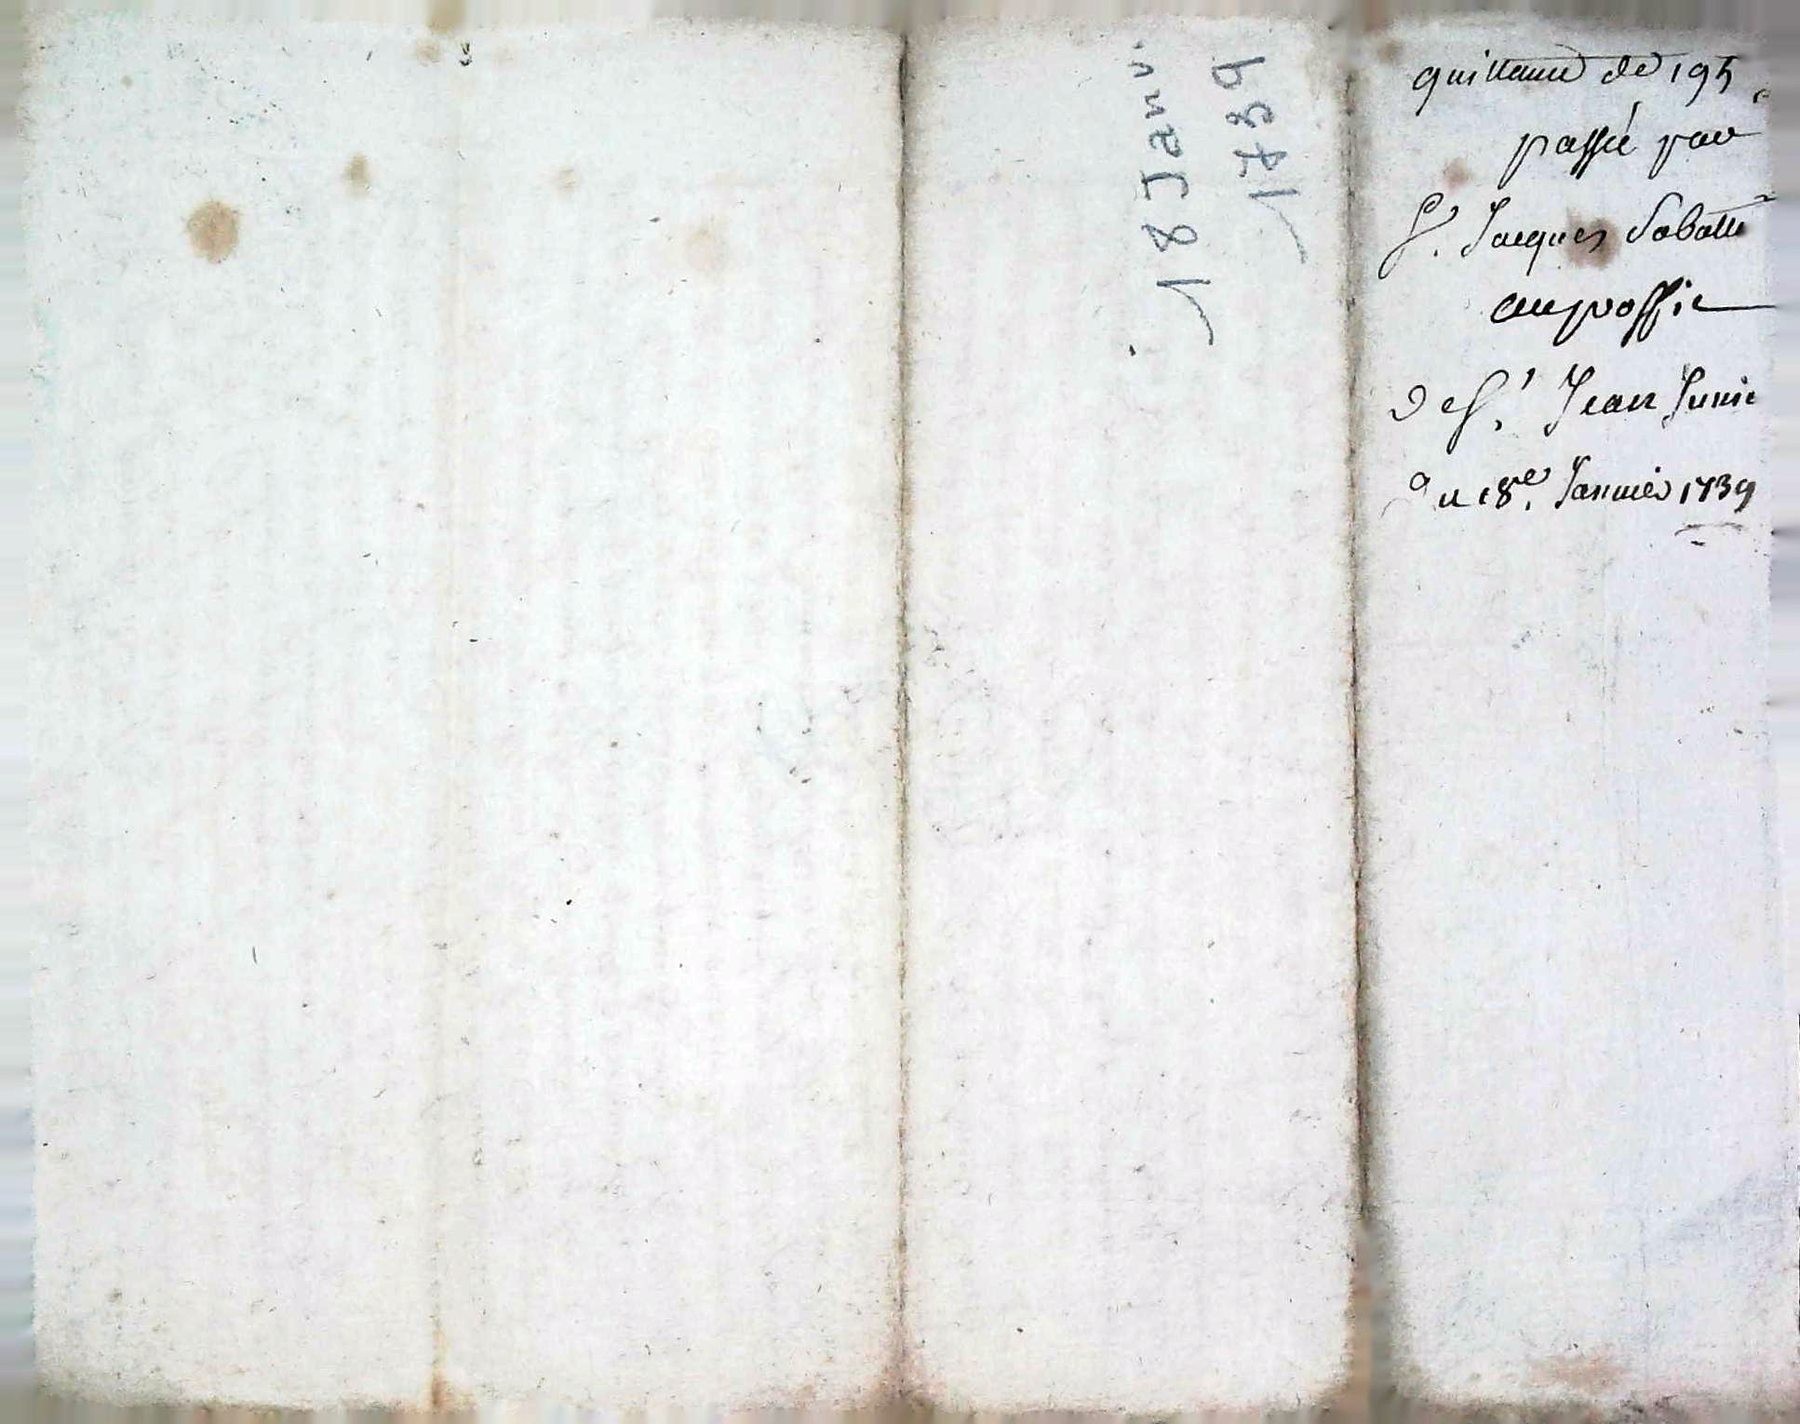 quittance de 195
passée par
Sr. Jacques Sabatié
au proffit
de Sr. Jean Junie
du 18e. Janvier 1739
18 Janv.
1739